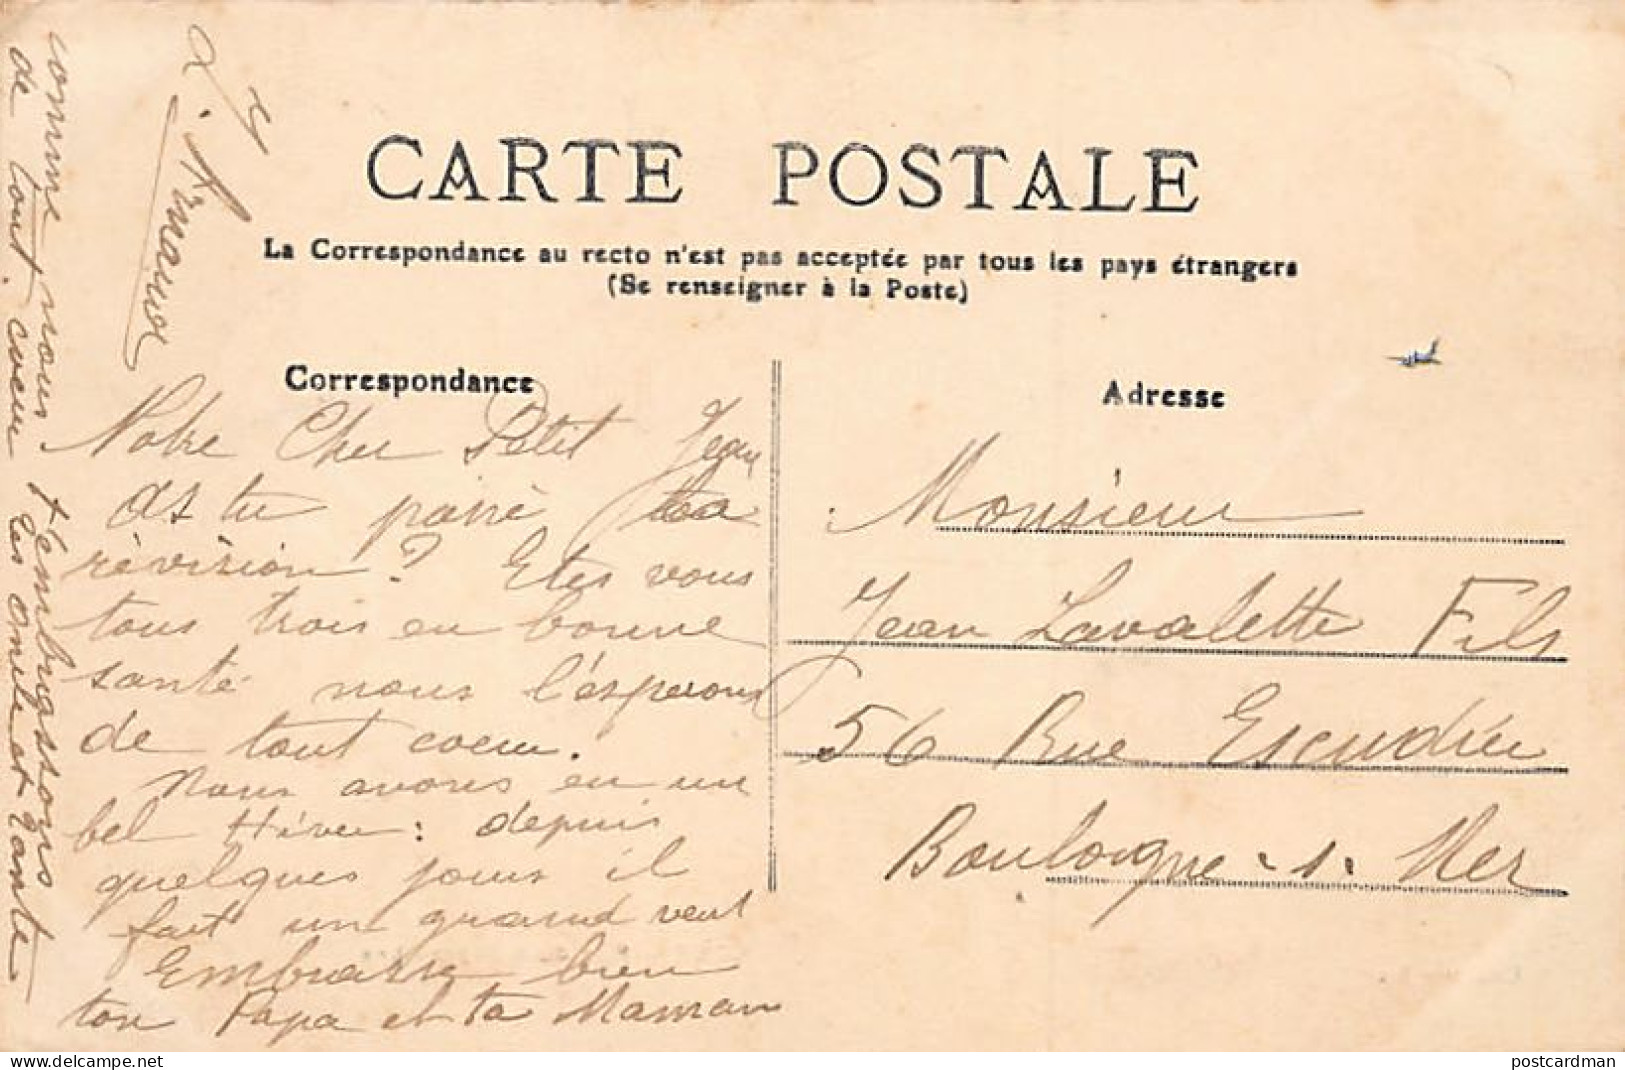 CARTE POSTALE
La Correspondance au recto n'est pas acceptée par tous les pays étrangers
(Se renseigner à la Poste)
Correspondance
Notre Cher Petit Jean
as tu passé ta
révision ? Etes vous
tous trois en bonne
santé nous l'espérons
de tout coeur.
Nous avons eu un
bel Hiver : depuis
quelques jours il
fait un grand vent
Embrasse bien
ton Papa et ta Maman
comme nous t'embrassons
de tout coeur tes oncle et tante
Adresse
Monsieur
Jean Lavalette Fils
56 Rue Escudier
Boulogne-s-Mer
delcampe.net
postcardman